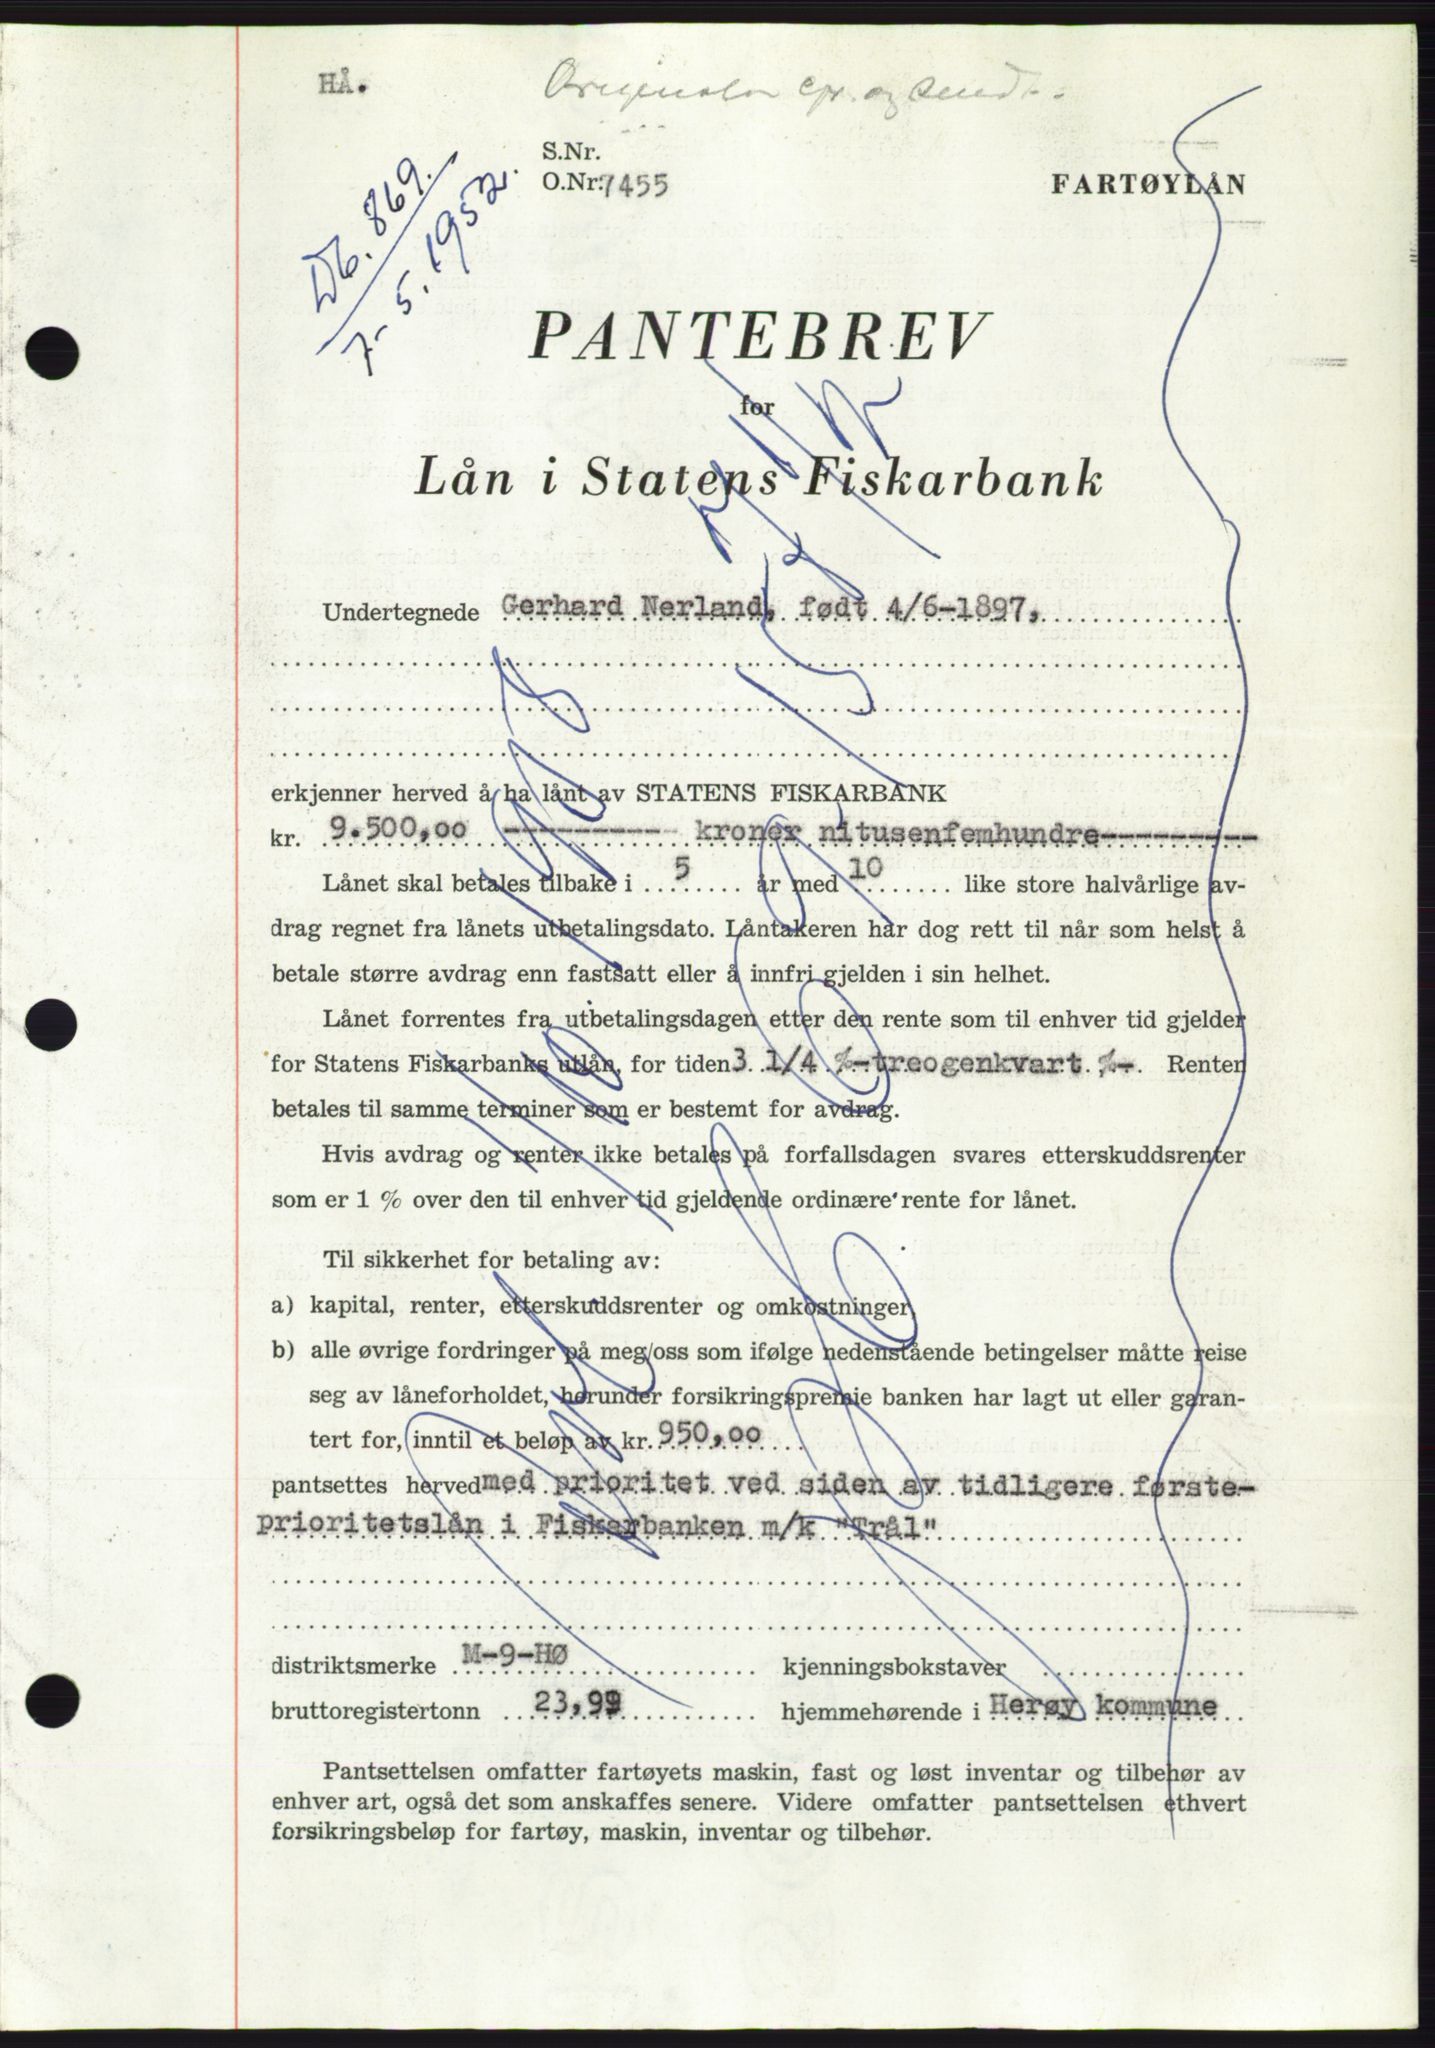 HÅ.
S.Nr.
O.Nr. 7455
FARTØYLÅN
Db. 869.
7-5.1952.
PANTEBREV
for
Lån i Statens Fiskarbank
Undertegnede Gerhard Nerland, født 4/6-1897,
erkjenner herved å ha lånt av STATENS FISKARBANK
kr. 9.500,00 ---------- kroner nitusenfemhundre---------
Lånet skal betales tilbake i 5 år med 10 like store halvårlige av-
drag regnet fra lånets utbetalingsdato. Låntakeren har dog rett til når som helst å
betale større avdrag enn fastsatt eller å innfri gjelden i sin helhet.
Lånet forrentes fra utbetalingsdagen etter den rente som til enhver tid gjelder
for Statens Fiskarbanks utlån, for tiden 3 1/4 %-treogenkvart %-. Renten
betales til samme terminer som er bestemt for avdrag.
Hvis avdrag og renter ikke betales på forfallsdagen svares etterskuddsrenter
som er 1 % over den til enhver tid gjeldende ordinære rente for lånet.
Til sikkerhet for betaling av:
a) kapital, renter, etterskuddsrenter og omkostninger,
b) alle øvrige fordringer på meg/oss som ifølge nedenstående betingelser måtte reise
seg av låneforholdet, herunder forsikringspremie banken har lagt ut eller garan-
tert for, inntil et beløp av kr. 950,00
pantsettes herved med prioritet ved siden av tidligere første-
prioritetslån i Fiskarbanken m/k "Trål"
distriktsmerke M-9-HØ kjenningsbokstaver
bruttoregistertonn 23,99 hjemmehørende i Herøy kommune
Pantsettelsen omfatter fartøyets maskin, fast og løst inventar og tilbehør av
enhver art, også det som anskaffes senere. Videre omfatter pantsettelsen ethvert
forsikringsbeløp for fartøy, maskin, inventar og tilbehør.